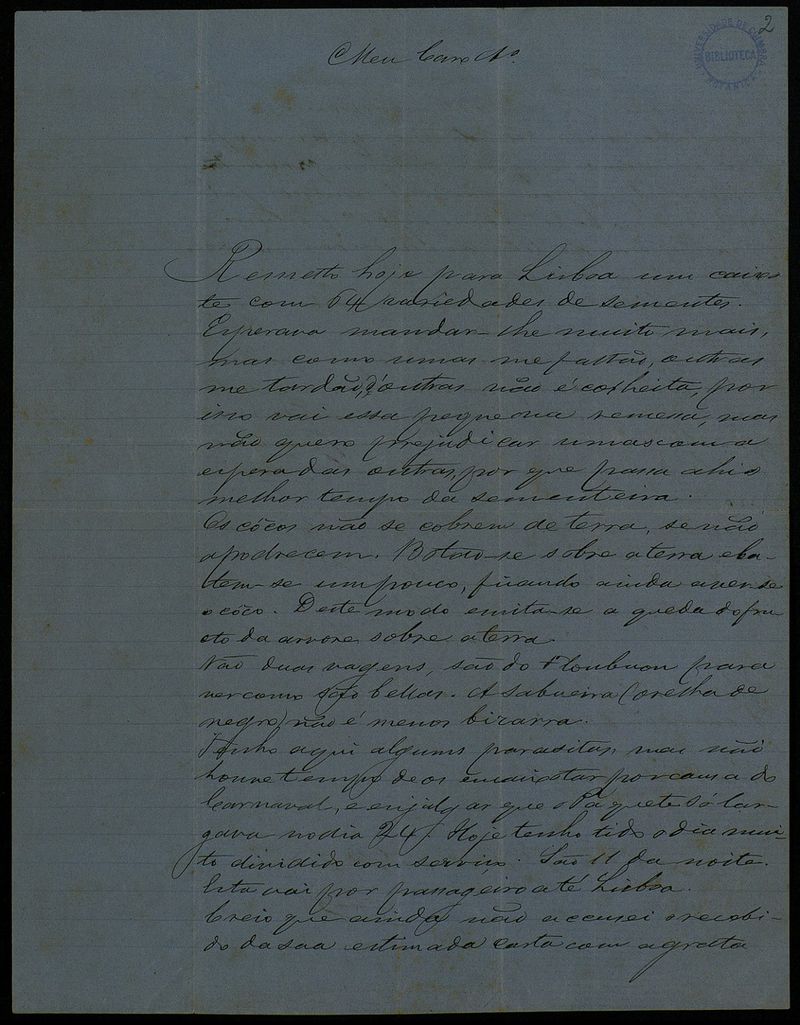 2
UNIVERSIDADE DE COIMBRA
BIBLIOTECA
BOTANICA
Meu Caro Aº.
Remetto hoje para Lisboa um caixo
te com 64 variedades de sementes.
Esperava mandar-lhe muito mais,
mas como umas me faltão, outras
me tardão, d'outras não é colheita, por
isso vai essa pequena remessa, mas
não quero prejudicar umas com a
espera das outras, por que passa ahi o
melhor tempo da sementeira.
Os côcos não se cobrem de terra, se não
apodrecem. Botão-se sobre a terra e ba-
tem-se um pouco, ficando ainda a ver-se
o côco. Deste modo emita-se a queda do fru
cto da arvore sobre a terra
Vão duas vagens, são do para
ver como são bellas. A sabueira (orelha de
negro) não é menos bizarra.
Tenho aqui alguns parasitas, mas não
houve tempo de os encaixotar por causa do
Carnaval, e e julgar que o Paquete só lar-
gava no dia 24. Hoje tenho tido o dia mui-
to dividido com serviço. São 11 da noite.
Esta vai por passageiro até Lisboa.
Creio que ainda não accusei o recebi-
do da sua estimada carta com a grata